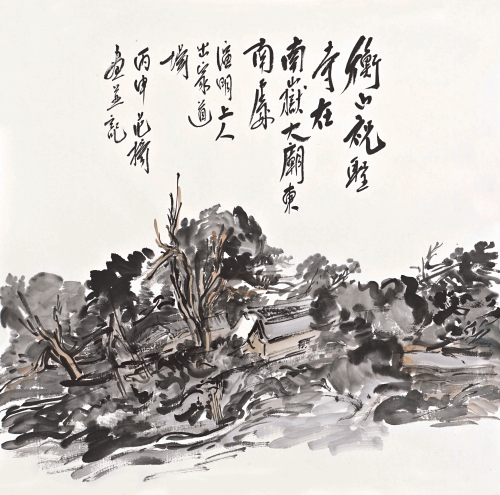 衡山祝聖
寺在
南嶽大廟東
南處
上人
出家道
場
丙申范揚
畫並記